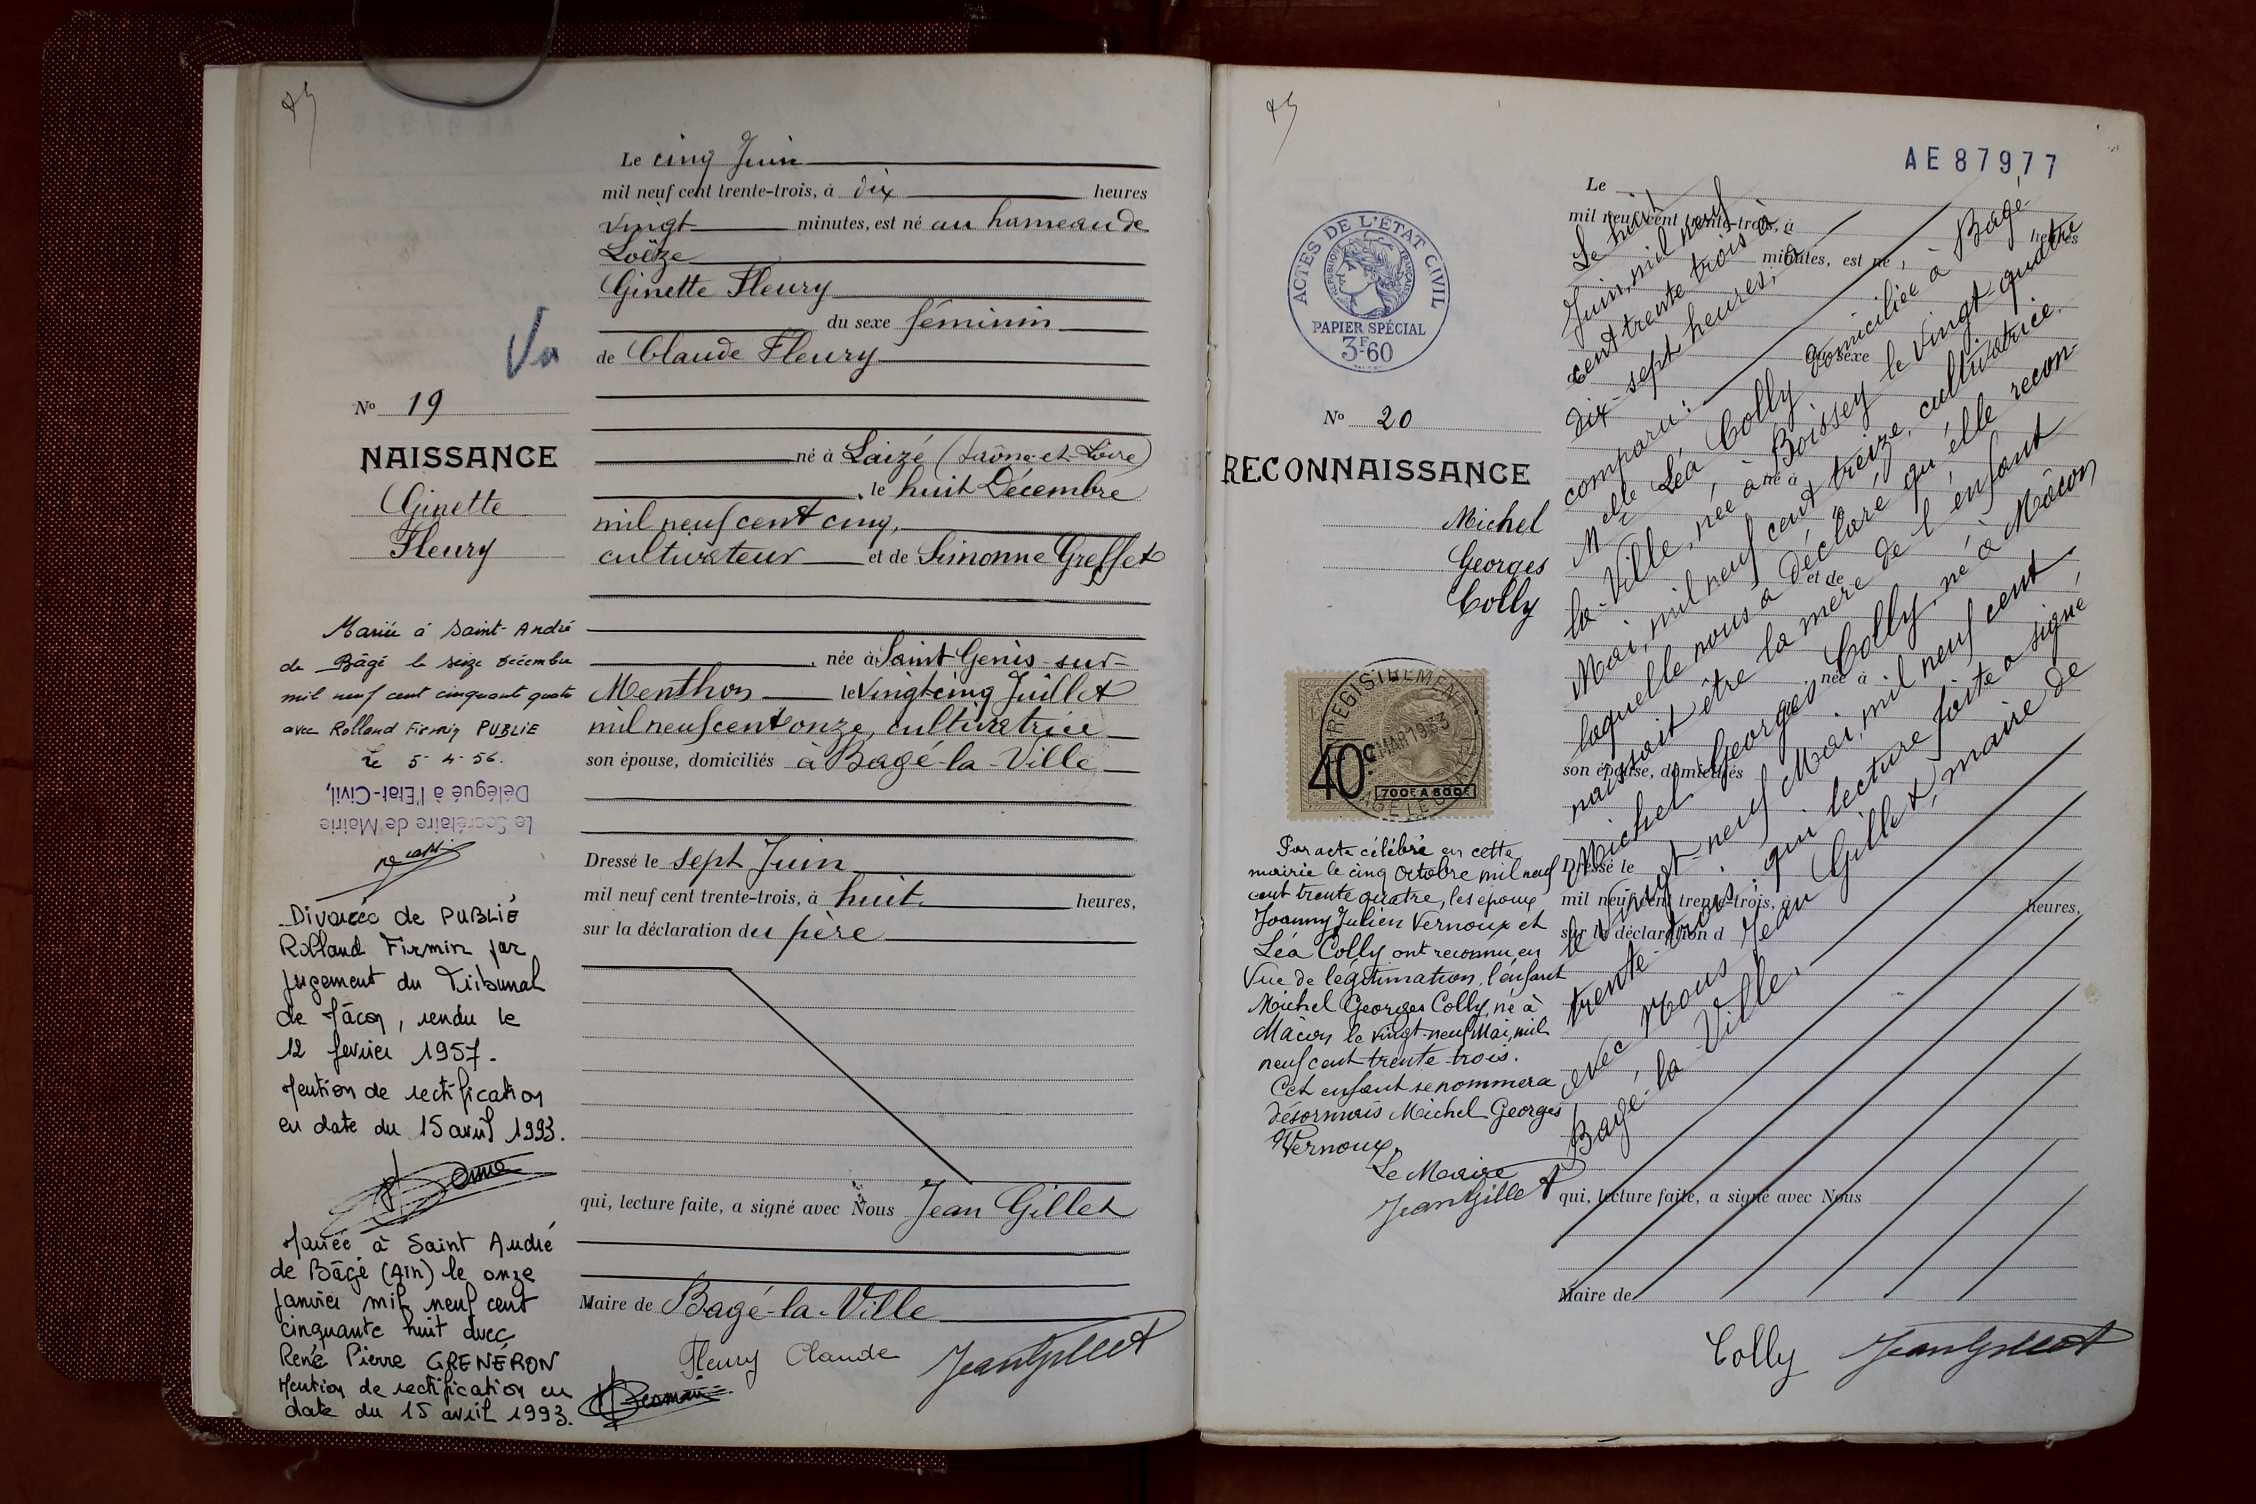 Le cinq Juin
mil neuf cent trente-trois, à dix heures
vingt minutes, est né au hameau de
Loëze
Ginette Fleury
du sexe féminin
de Claude Fleury
né à Laizé (Saône-et-Loire)
, le huit Décembre
mil neuf cent cinq,
cultivateur et de Simonne Greffet
, née à Saint Genis-sur-
Menthon le vingt-cinq Juillet
mil neuf cent onze, cultivatrice
son épouse, domiciliés à Bagé-la-Ville
Dressé le sept Juin
mil neuf cent trente-trois, à huit heures,
sur la déclaration du père
qui, lecture faite, a signé avec Nous Jean Gillet
Maire de Bagé-la-Ville
Fleury Claude Jean Gillet
Nº 19
NAISSANCE
Ginette
Fleury
Mariée à Saint-André
de Bâgé le seize décembre
mil neuf cent cinquante quatre
avec Rolland Firmin PUBLIÉ
Le 5-4-56.
Le Secrétaire de Mairie
Délégué à l'Etat-Civil,
Divorcée de PUBLIÉ
Rolland Firmin par
jugement du Tribunal
de Mâcon, rendu le
12 fevrier 1957.
Mention de rectification
en date du 15 avril 1993.
Mariée à Saint André
de Bâgé (Ain) le onze
janvier mil neuf cent
cinquante huit avec
René Pierre GRENÉRON
Mention de rectification en
date du 15 avril 1993.
AE87977
ACTES DE L'ÉTAT CIVIL
RÉPUBLIQUE FRANÇAISE
PAPIER SPÉCIAL
3F.60
Nº 20
RECONNAISSANCE
Michel
Georges
Colly
ENREGISTREMENT
MAR 1933
40c
700F A 800F
Par acte célébré en cette
mairie le cinq Octobre mil neuf
cent trente quatre, les époux
Joanny Julien Vernoux et
Léa Colly ont reconnu en
vue de légitimation, l'enfant
Michel Georges Colly, né à
Mâcon le vingt-neuf Mai, mil
neuf cent trente-trois.
Cet enfant se nommera
désormais Michel Georges
Vernoux.
Le Maire
Jean Gillet
Le
mil neuf cent trente-trois, à
heures
minutes, est né
du sexe
né à
le
et de
née à
son épouse, domiciliés
Dressé le
mil neuf cent trente-trois, à heures,
sur la déclaration d
qui, lecture faite, a signé avec Nous
Maire de
Le huit
Juin, mil neuf
cent trente trois à
dix-sept heures, a
comparu:
Melle Léa Colly domiciliée à Bagé
la-Ville, née à Boissey le vingt-quatre
Mai, mil neuf cent treize, cultivatrice.
laquelle nous a déclaré qu'elle recon-
naissait être la mère de l'enfant
Michel Georges Colly, né à Mâcon
le vingt-neuf Mai, mil neuf cent
trente-trois; qui lecture faite a signé
avec Nous Jean Gillet, maire de
Bagé-la-Ville.
Colly Jean Gillet